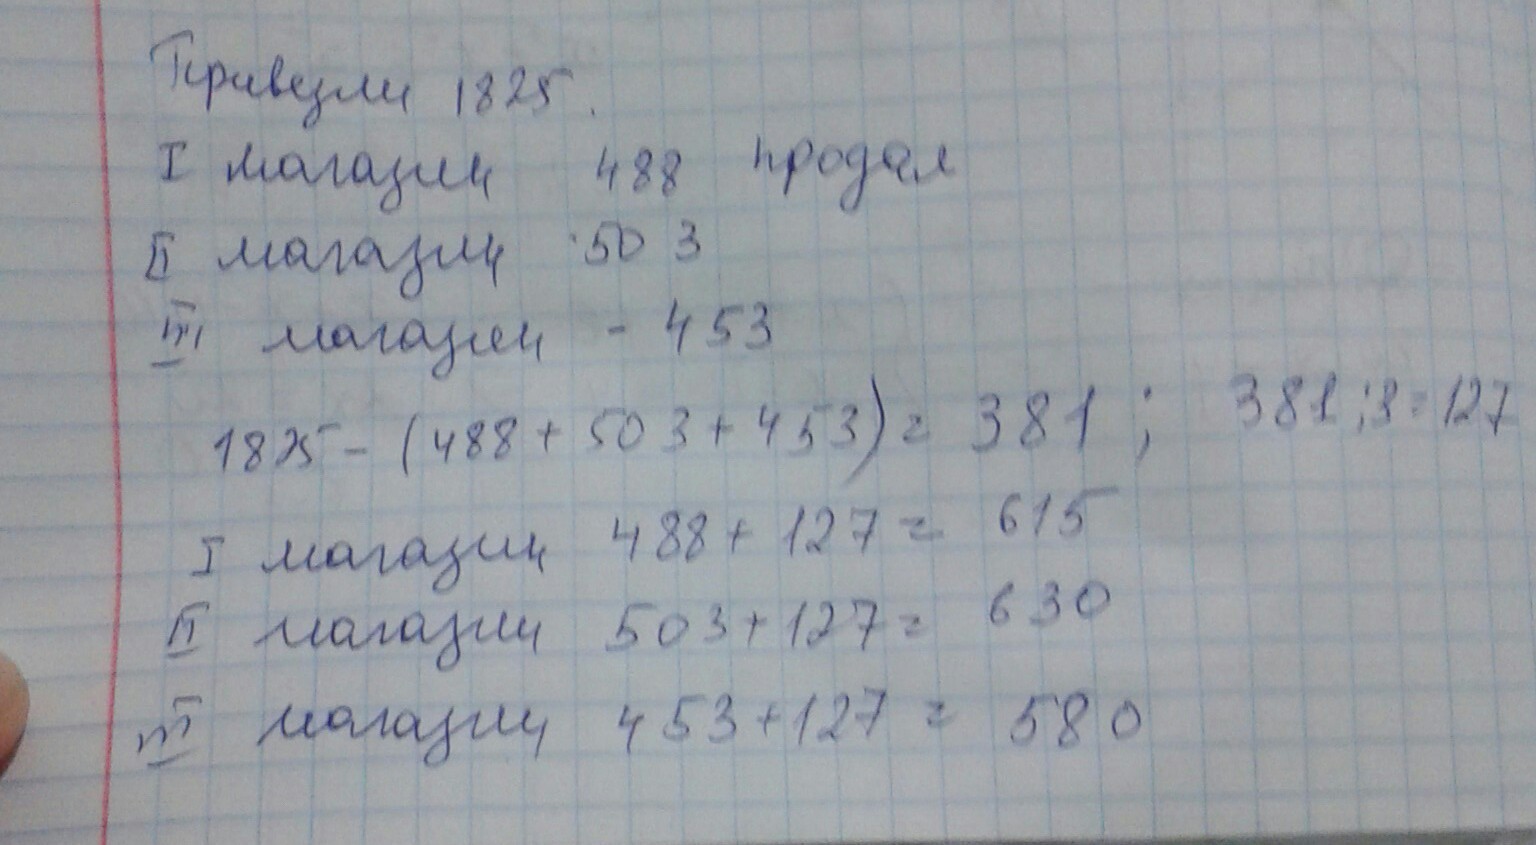 Привезли 1825.
I магазин 488 продал
II магазин 503
III магазин - 453
1825 - (488 + 503 + 453) = 381 ; 381 : 3 = 127
I магазин 488 + 127 = 615
II магазин 503 + 127 = 630
III магазин 453 + 127 = 580